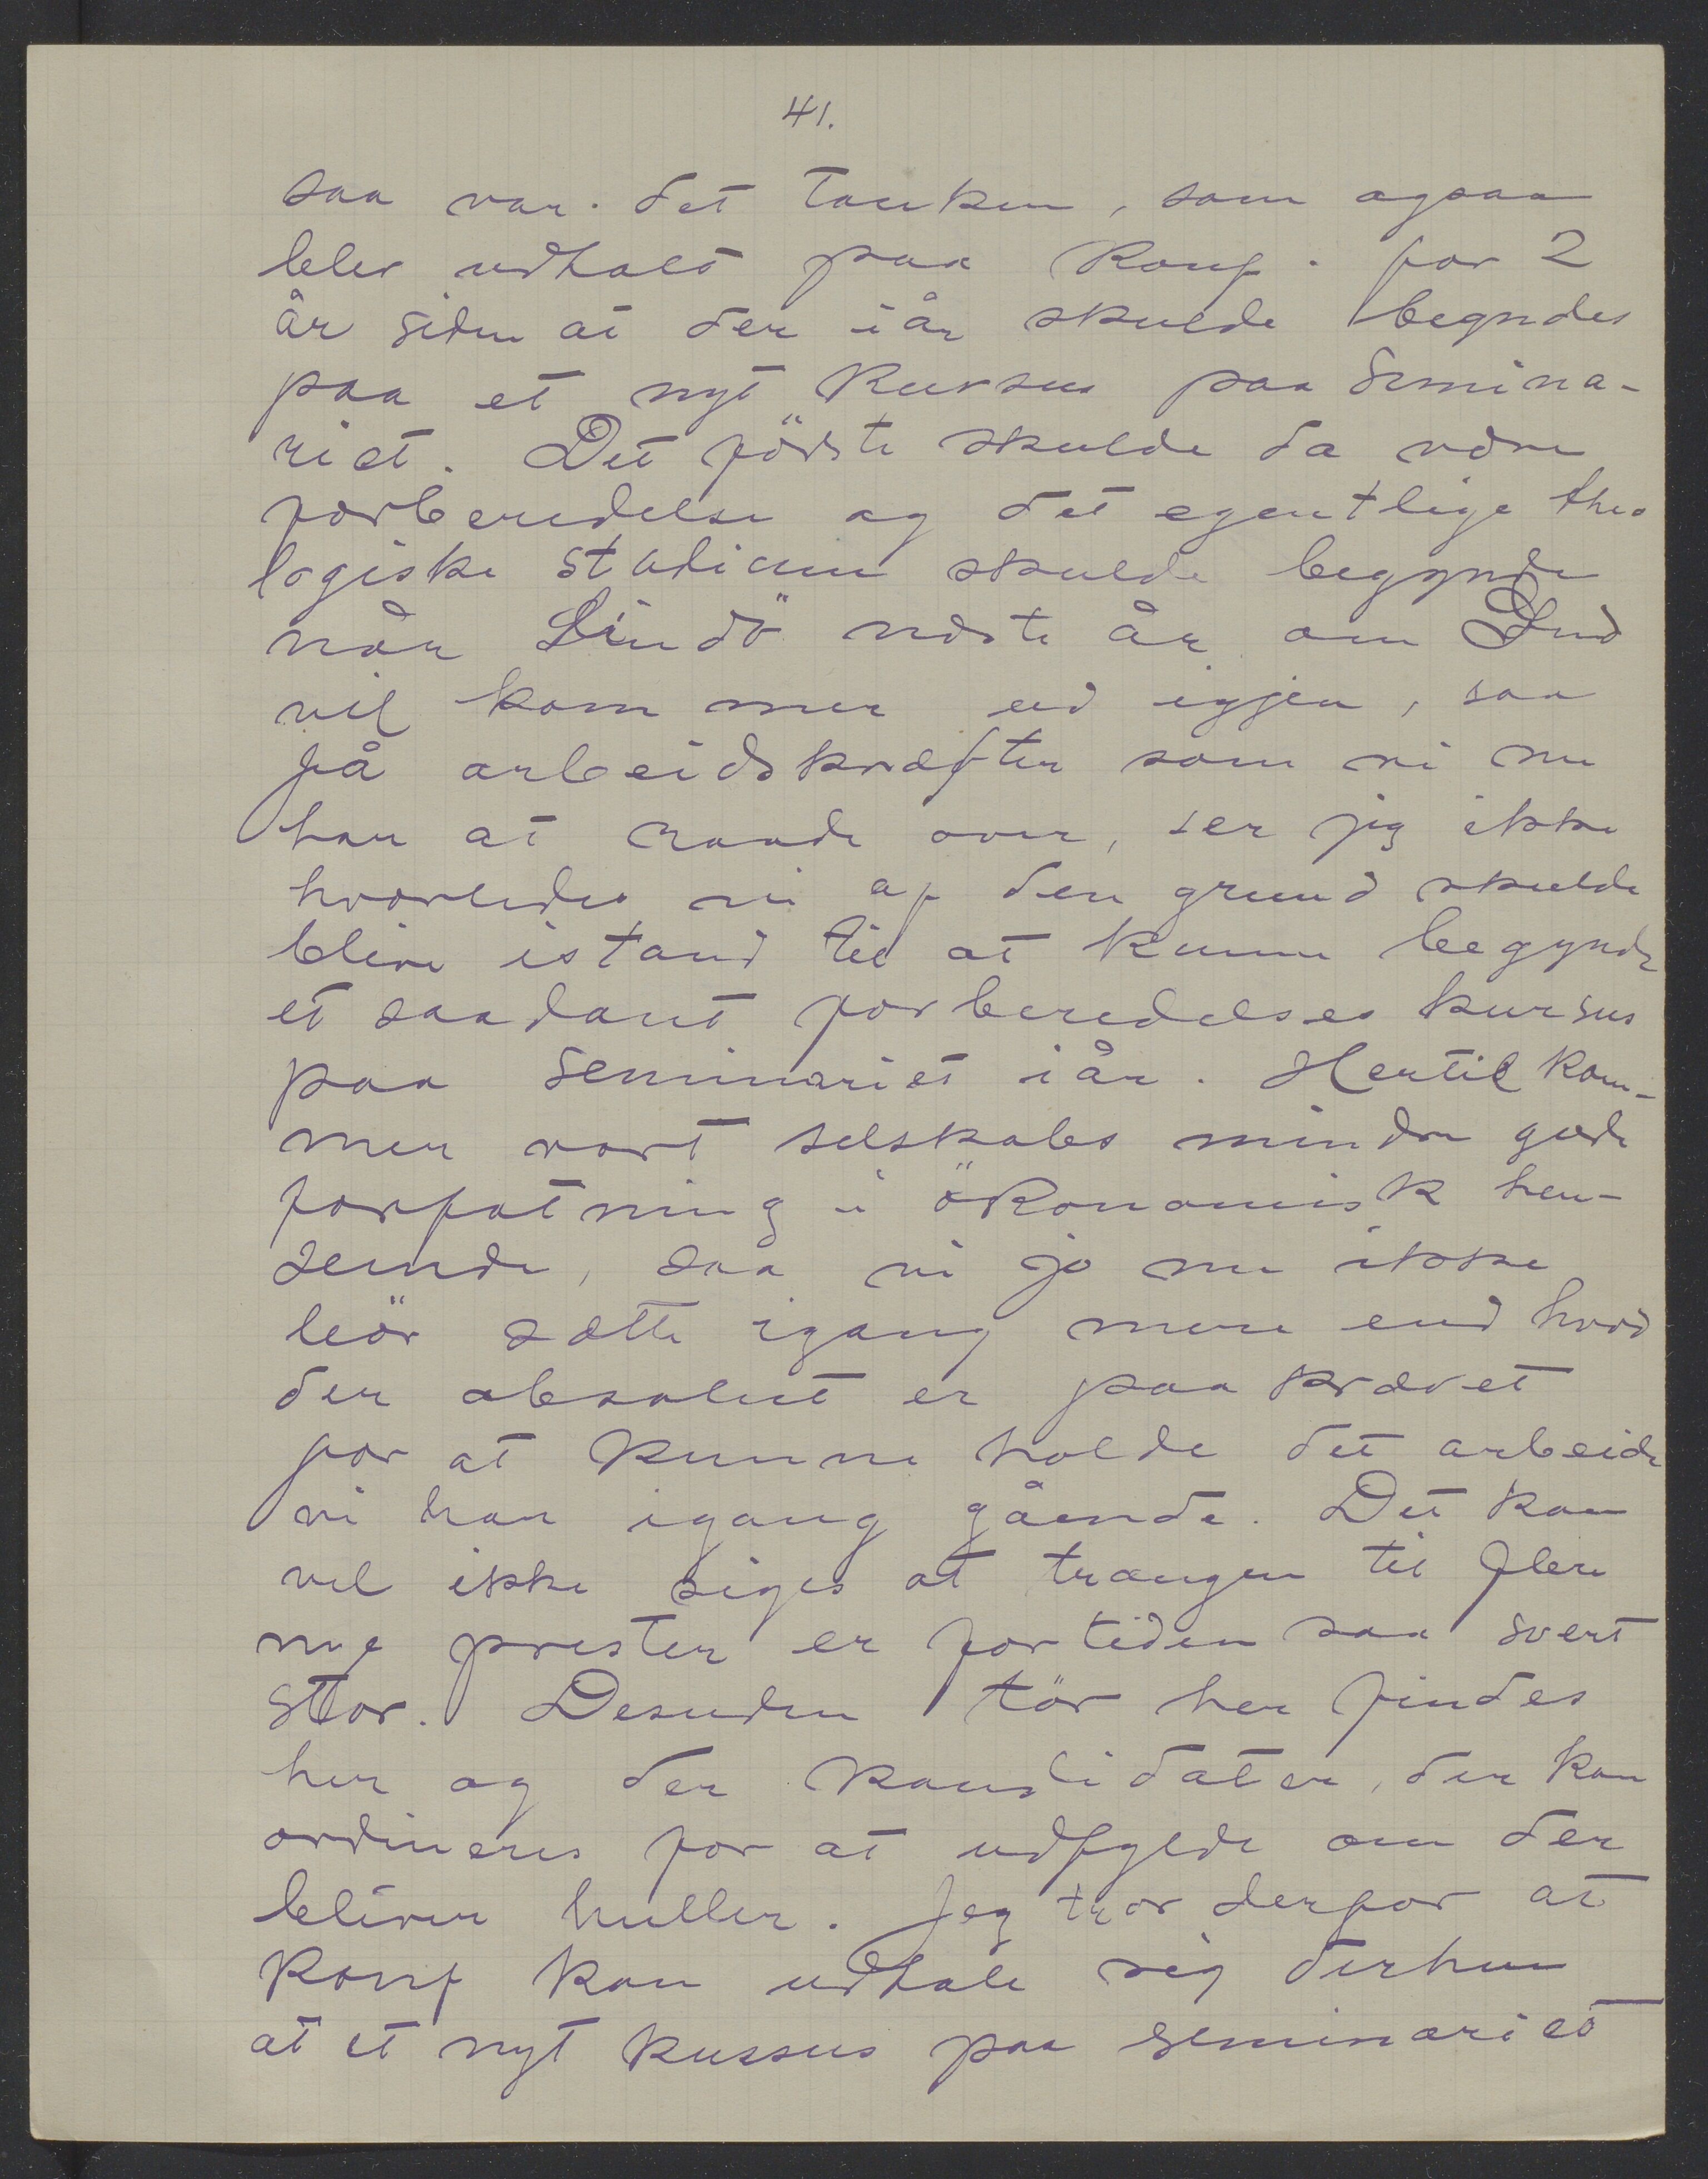 41.
saa var det tanken, som ogsaa
blev udtalt paa Konf. for 2
år siden at der iår skulde begyndes
paa et nyt Kursus paa Semina-
riet. Det förste skulde da være
forberedelse og det egentlige theo
logiske studium skulde begynde
når Lindö næste år om Gud
vil kommer ud igjen, saa
få arbeidskræfter som vi nu
har at raade over, ser jeg ikke
hvorledes vi af den grund skulde
blive istand til at kunne begynde
et saadant forberedelses kursus
paa seminariet iår. Hertil kom-
mer vort selskabs mindre gode
forfatning i ökonomisk hen-
seende, saa vi jo nu ikke
bör sætte igang mere end hvad
der absolut er paakrævet
for at kunne holde det arbeide
vi har igang gående. Det kan
vel ikke siges at trangen til flere
nye prester er for tiden saa svert
stor. Desuden tör her findes
her og der kandidater, der kan
ordineres for at udfylde om der
bliver huller. Jeg tror derfor at
Konf kan udtale sig derhen
at et nyt kussus paa seminariet